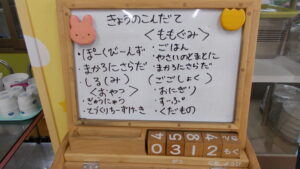 きょうのこんだて
<ももぐみ>
・ぽーくびーんず
・まかろにさらだ
しる(み)
<おやつ>
・ぎゅうにゅう
・てづくりちーずけーき
・ごはん
・やさいのとまとに
・まかろにさらだ
(ごごしょく)
・おにぎり
・すーぷ
・くだもの
4 5 8 4
0 3 1 2 もく